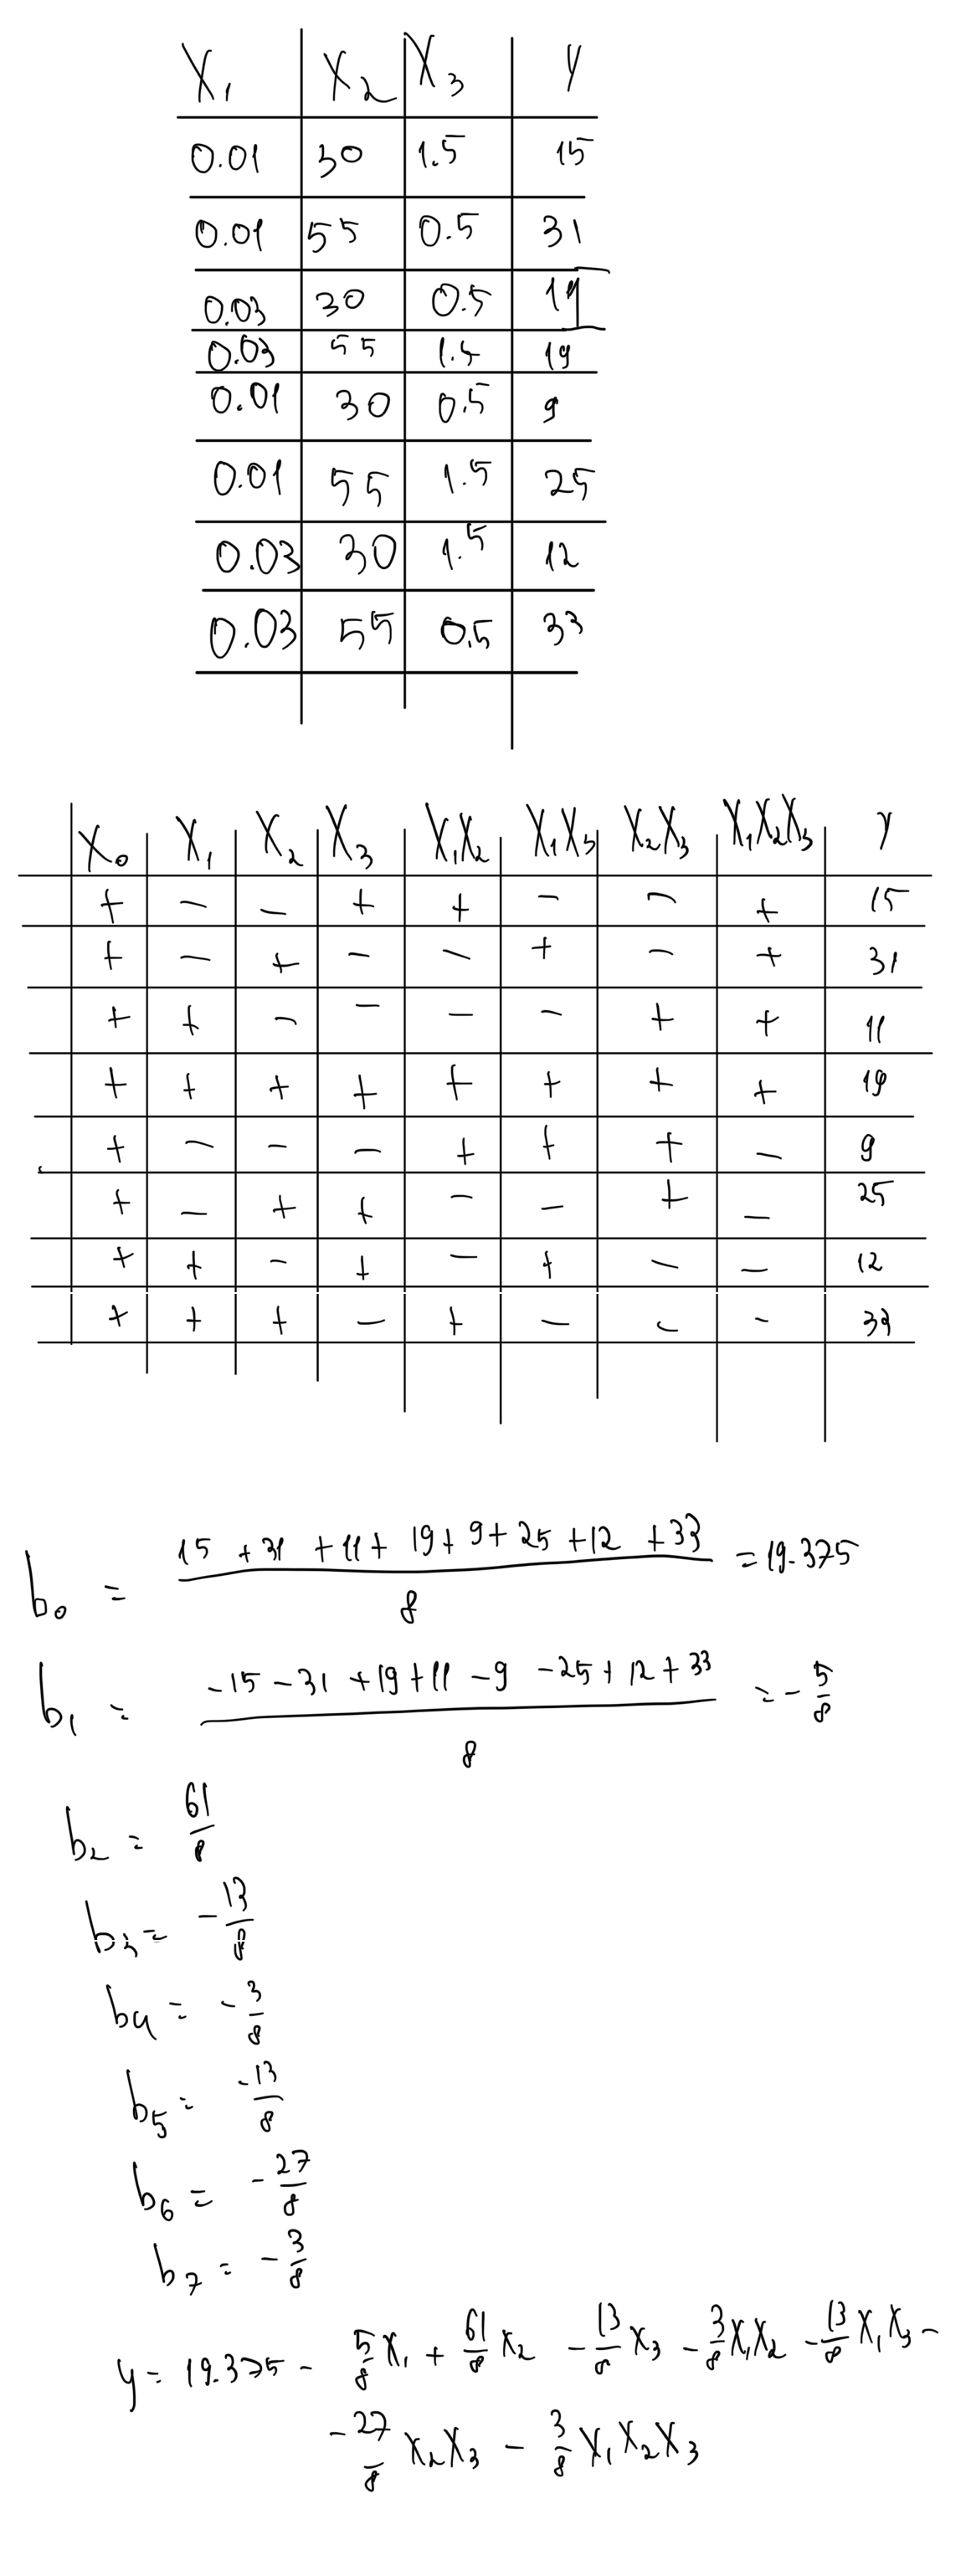 X₁ X₂ X₃ Y
0.01 30 1.5 15
0.01 55 0.5 31
0.03 30 0.5 11
0.03 55 1.5 19
0.01 30 0.5 9
0.01 55 1.5 25
0.03 30 1.5 12
0.03 55 0.5 33
X₀ X₁ X₂ X₃ X₁X₂ X₁X₃ X₂X₃ X₁X₂X₃ Y
+ − − + + − − + 15
+ − + − − + − + 31
+ + − − − − + + 11
+ + + + + + + + 19
+ − − − + + + − 9
+ − + + − − + − 25
+ + − + − + − − 12
+ + + − + − − − 33
b₀ = (15 + 31 + 11 + 19 + 9 + 25 + 12 + 33)/8 = 19.375
b₁ = (-15 - 31 + 19 + 11 - 9 - 25 + 12 + 33)/8 = -5/8
b₂ = 61/8
b₃ = -13/8
b₄ = -3/8
b₅ = -13/8
b₆ = -27/8
b₇ = -3/8
y = 19.375 - 5/8 X₁ + 61/8 X₂ - 13/8 X₃ - 3/8 X₁X₂ - 13/8 X₁X₃ -
- 27/8 X₂X₃ - 3/8 X₁X₂X₃